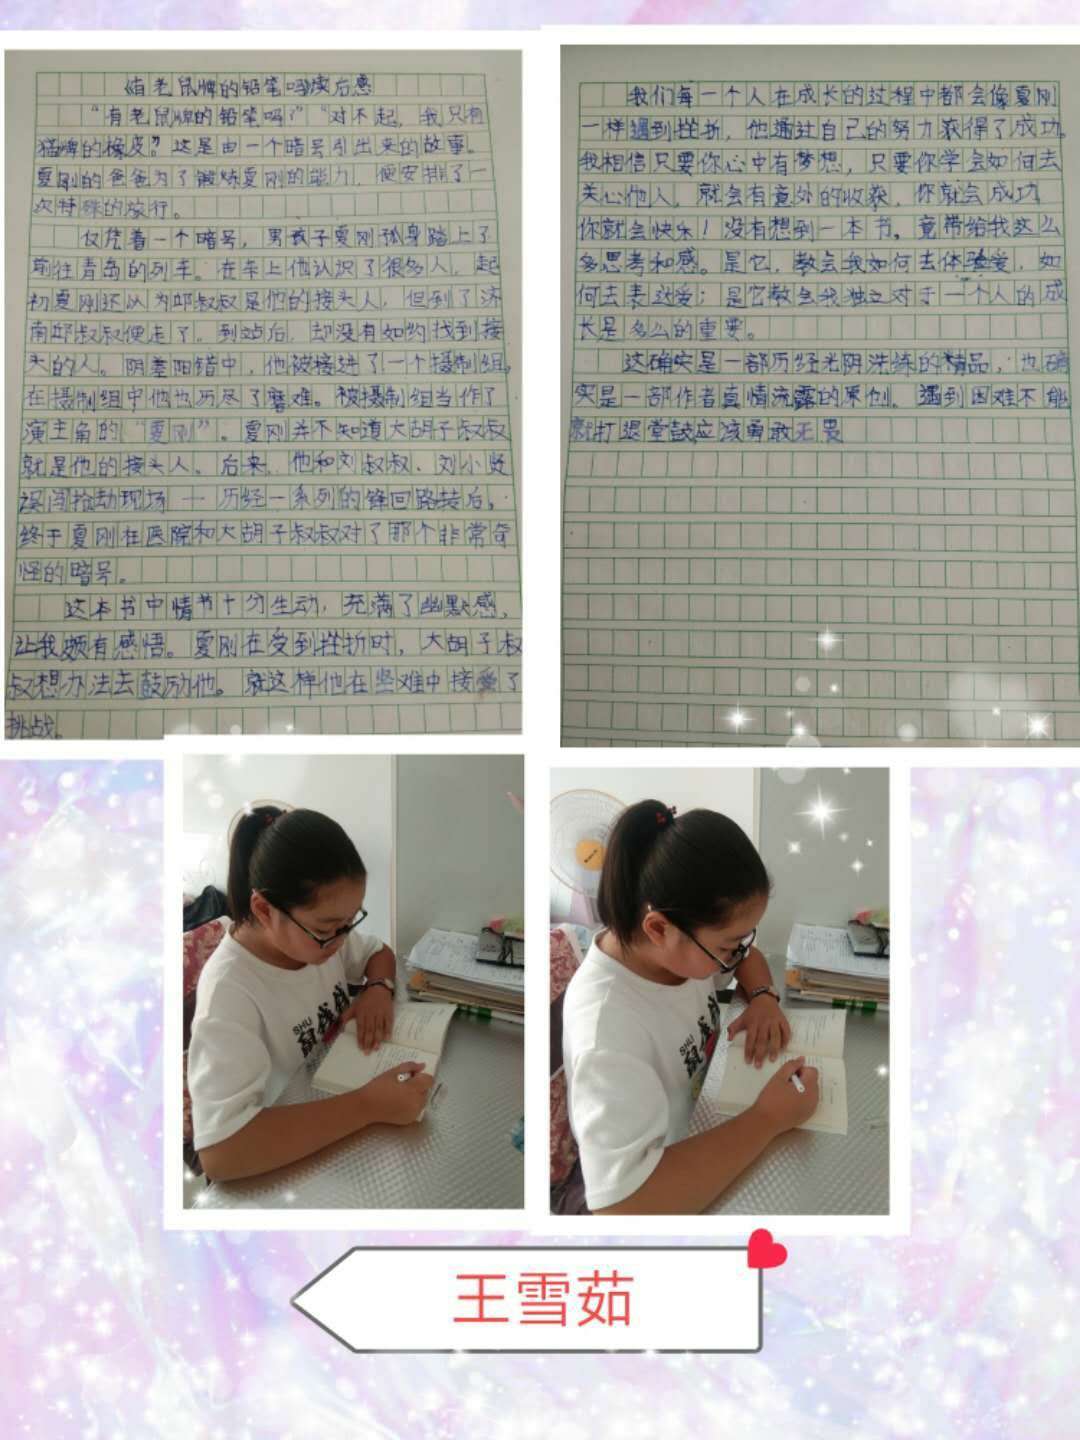 《有老鼠牌的铅笔吗》读后感
“有老鼠牌的铅笔吗?”“对不起，我只有
猫牌的橡皮。”这是由一个暗号引出来的故事。
夏刚的爸爸为了锻炼夏刚的能力，便安排了一
次特殊的旅行。
仅凭着一个暗号，男孩子夏刚孤身踏上了
前往青岛的列车。在车上他认识了很多人，起
初夏刚还以为邱叔叔是他的接头人，但到了济
南邱叔叔便走了。到站后，却没有如约找到接
头的人。阴差阳错中，他被接进了一个摄制组，
在摄制组中他也历尽了磨难。被摄制组当作了
演主角的“夏刚”。夏刚并不知道大胡子叔叔
就是他的接头人。后来，他和刘叔叔、刘小贤
误闯抢劫现场——历经一系列的锋回路转后，
终于夏刚在医院和大胡子叔叔对了那个非常奇
怪的暗号。
这本书中情节十分生动，充满了幽默感，
让我颇有感悟。夏刚在受到挫折时，大胡子叔
叔想办法去鼓励他。就这样他在坚难中接受了
挑战。
我们每一个人在成长的过程中都会像夏刚
一样遇到挫折，他通过自己的努力获得了成功。
我相信只要你心中有梦想，只要你学会如何去
关心他人，就会有意外的收获，你就会成功，
你就会快乐！没有想到一本书，竟带给我这么
多思考和感。是它，教会我如何去体验爱，如
何去表达爱；是它教会我独立对于一个人的成
长是多么的重要。
这确实是一部历经光阴洗练的精品，也确
实是一部作者真情流露的原创。遇到困难不能
就打退堂鼓应该勇敢无畏
SHU
王雪茹